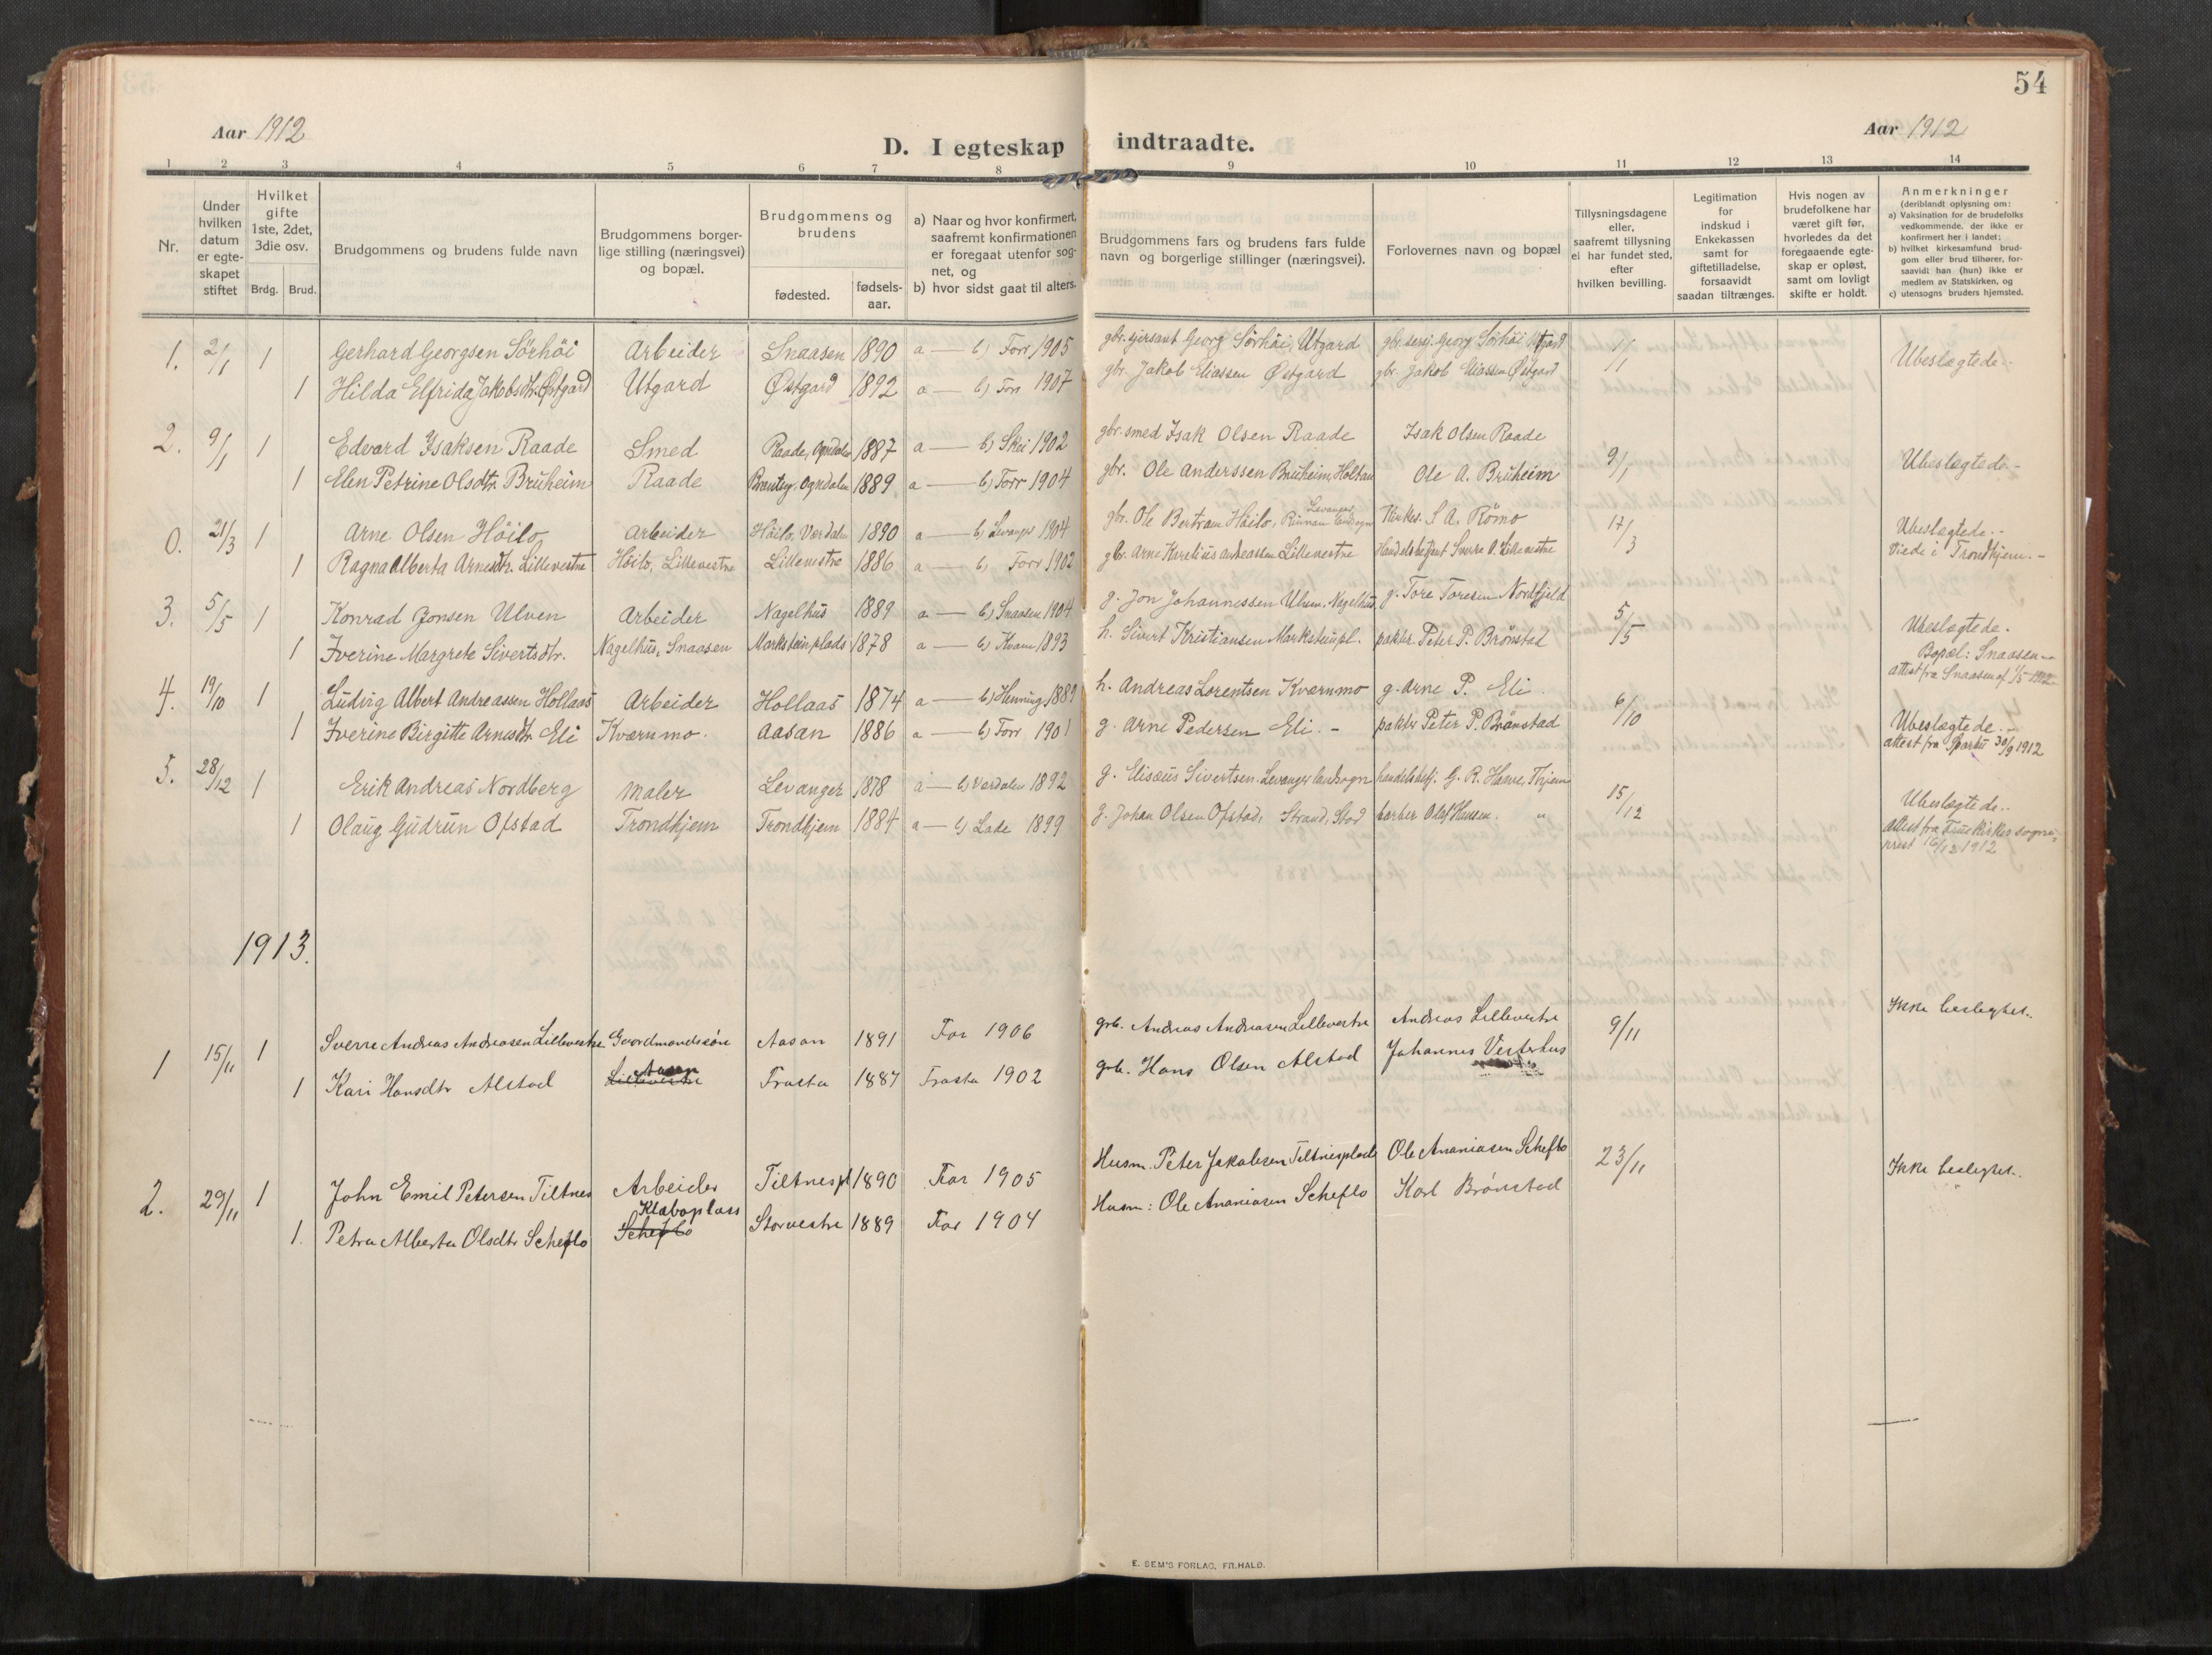 54
Aar 1912
Aar 1912
D. I egteskap indtraadte.
1 2 3 4 5 6 7 8 9 10 11 12 13 14
Nr.
Under hvilken datum er egte-skapet stiftet
Hvilket gifte 1ste, 2det, 3die osv.
Brdg. Brud.
Brudgommens og brudens fulde navn
Brudgommens borger-lige stilling (næringsvei) og bopæl.
Brudgommens og brudens
fødested.
fødsels-aar.
a) Naar og hvor konfirmert, saafremt konfirmationen er foregaat utenfor sog-net, og
b) hvor sidst gaat til alters.
Brudgommens fars og brudens fars fulde navn og borgerlige stillinger (næringsvei).
Forlovernes navn og bopæl
Tillysningsdagene eller, saafremt tillysning ei har fundet sted, efter hvilken bevilling.
Legitimation for indskud i Enkekassen samt for giftetilladelse, forsaavidt saadan tiltrænges.
Hvis nogen av brudefolkene har været gift før, hvorledes da det foregaaende egte-skap er opløst, samt om lovligt skifte er holdt.
Anmerkninger
(deriblandt oplysning om:
a) Vaksination for de brudefolks vedkommende, der ikke er konfirmert her i landet;
b) hvilket kirkesamfund brud-gom eller brud tilhører, for-saavidt han (hun) ikke er medlem av Statskirken, og
c) utensogns bruders hjemsted.
1. 2/1 1 Gerhard Georgsen Sörhöi Arbeider Snaasen 1890 a — b) Forr 1905 gbr. sersant Georg Sörhöi, Utgard gbr. sersj. Georg Sörhöi Utgård 1/1 Ubeslægtede.
1 Hilda Elfrida Jakobsdtr. Østgard Utgard Østgard 1892 a — b) Forr 1907 gbr. Jakob Eliassen Østgard gbr. Jakob Eliassen Østgard
2. 9/1 1 Edvard Ysaksen Raade Smed Raade, Ogndalen 1887 a — b) Skei 1902 gbr. smed Isak Olsen Raade Isak Olsen Raade 9/1 Ubeslægtede.
1 Elen Petrine Olsdtr. Bruheim Raade Ogndalen 1889 a — b) Forr 1904 gbr. Ole Anderssen Bruheim, Ole A. Bruheim
0. 21/3 1 Arne Olsen Höilo Arbeider Höilo, Værdalen 1890 a — b) Levanger 1904 gbr. Ole Bertram Höilo, Rinnan Levanger landsogn Kirkes. S A. Römo 17/3 Ubeslægtede.
1 Ragna Alberta Arnesdtr. Lillevestre Höilo, Lillevestre Lillevestre 1886 a — b) Forr 1902 gbr. Arne Kurelius Andreassen Lillevestre Handelsbetjent Sverre A. Lillevestre Viede i Trondhjem.
3. 5/5 1 Konrad Jonsen Ulven Arbeider Nagelhus 1889 a — b) Snaasen 1904 g. Jon Johannessen Ulven, Nagelhus g. Tore Toresen Nordfjeld 5/5 Ubeslægtede.
1 Iverine Margrete Sivertsdtr. Nagelhus, Snaasen Markstein plads 1878 a — b) Kvam 1893 h. Sivert Kristiansen Marksteinpl. pakter Peter P. Brønstad Bopæl: Snaasen
attest fra Snaasen af 1/5 1912
4. 19/10 1 Ludvig Albert Andreassen Hollaas Arbeider Hollaas 1874 a — b) Henning 1889 h. Andreas Lorentsen Kværnmo g. Arne P. Eli 6/10
1 Iverine Birgitte Arnesdtr. Eli Kværnmo. Aasan 1886 a — b) Forr 1901 g. Arne Pedersen Eli. - pakter Peter P. Brønstad Ubeslægtede.
attest fra Sparbu 30/9 1912
5. 28/12 1 Erik Andreas Nordberg Maler Levanger 1878 a — b) Værdalen 1892 g. Elisæus Sivertsen. Levanger landsogn handelsbetj. G. R. Haave, Thjem 15/12 Ubeslægtede.
1 Olaug Gudrun Ofstad Trondhjem Trondhjem 1884 a — b) Lade 1899 g. Johan Olsen Ofstad, Strand, Stod barber Olaf Hansen. "
attest fra Fruekirkes sogne-
prest 16/12 1912
1913.
1 15/11 1 Sverre Andreas Andreasen Lillevestre Gaardmandssön Aasan 1891 For 1906 grb. Andreas Andreasen Lillevestre Andreas Lillevestre 9/11 Ikke beslegtet.
Aasan
1 Kari Hansdtr Alstad Lillevestre Frosta 1887 Frosta 1902 grb. Hans Olsen Alstad Johannes Vesterhus
2. 29/11 1 John Emil Petersen Tiltnes Arbeider Tiltnespl 1890 For 1905 Husm. Peter Jakobsen Tiltnesplads Ole Ananiasen Scheflo 23/11 Ikke beslegtet.
Klaboplass
1. Petra Alberta Olsdtr Scheflo Scheflo Storvestre 1889 For 1904 Husm: Ole Ananiasen Scheflo Karl Brönstad
E. SEM'S FORLAG, FR.HALD.